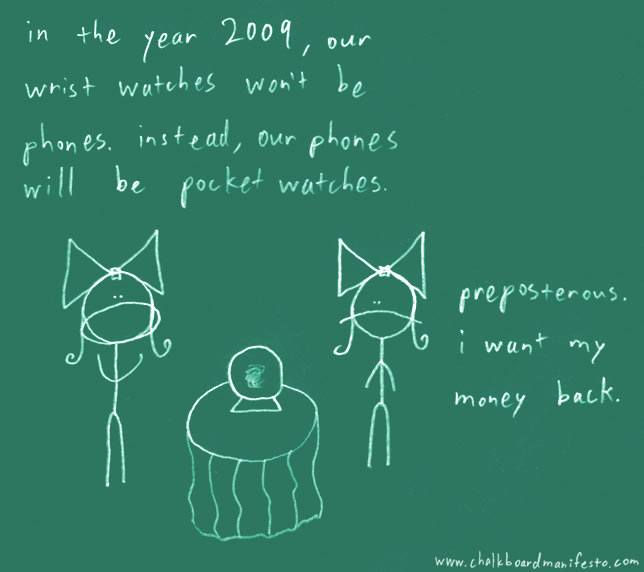 in the year 2009, our
wrist watches won't be
phones. instead, our phones
will be pocket watches.
preposterous.
i want my
money back.
www.chalkboardmanifesto.com